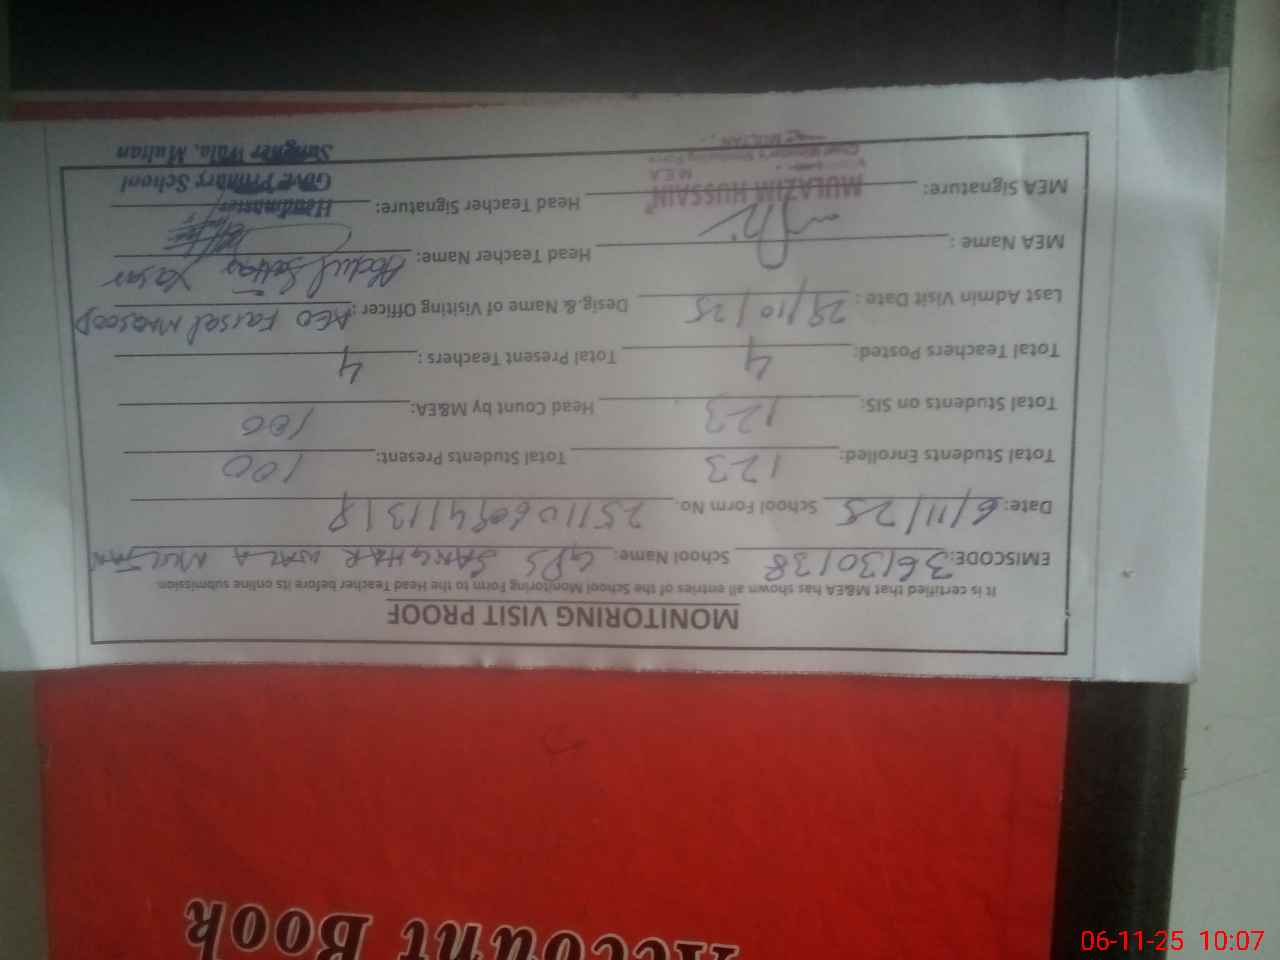 MONITORING VISIT PROOF
It is certified that M&EA has shown all entries of the School Monitoring Form to the Head Teacher before its online submission
EMISCODE: 36130138 School Name: GPS SANGHAR WALA MULTAN
Date: 6/11/25 School Form No.
Total Students Enrolled: 123 Total Students Present: 100
Total Students on SIS: 123 Head Count by M&EA: 100
Total Teachers Posted: 4 Total Present Teachers: 4
Last Admin Visit Date: 29/10/25 Desig.& Name of Visiting Officer: AEO Faisel MASOOD
MEA Name: Head Teacher Name: Abdul Sattar Yasar
MEA Signature: Head Teacher Signature:
MULAZIM HUSSAIN
M.E.A
MULTAN
Headmaster
Govt Primary School
Sangher Wala, Multan
Account Book
06-11-25 10:07